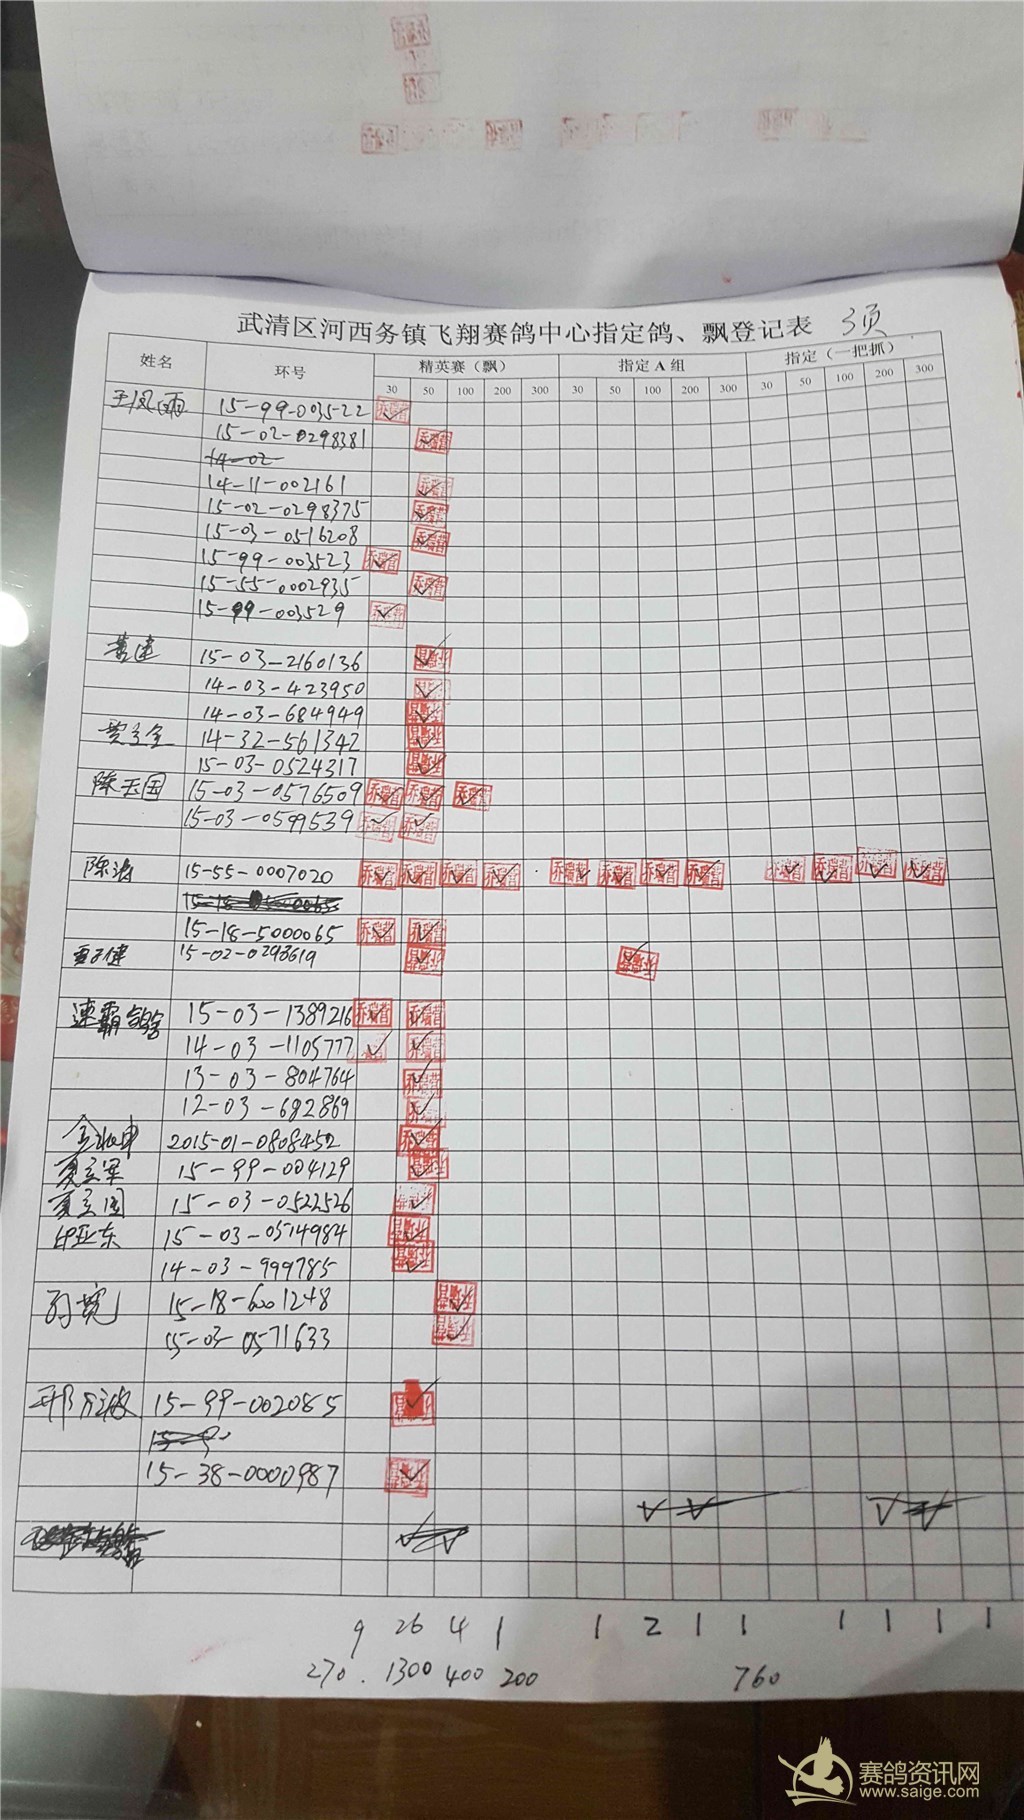 武清区河西务镇飞翔赛鸽中心指定鸽、飘登记表
姓名 环号 精英赛（飘） 指定A组 指定（一把抓）
30 50 100 200 300 30 50 100 200 300 30 50 100 200 300
王凤雨 15-99-003522
15-02-0298381
14-02
14-11-002161
15-02-0298375
15-03-0516208
15-99-003523
15-55-0002935
15-99-003529
15-03-2160136
14-03-423950
14-03-684949
14-32-561342
15-03-0524317
陈玉国 15-03-0576509
15-03-0599539
陈涛 15-55-0007020
15-18-5000065
15-02-0293619
速霸鸽舍 15-03-1389216
14-03-1105777
13-03-804764
12-03-682869
2015-01-0808452
夏立军 15-99-004129
夏立国 15-03-0522526
印亚东 15-03-0514984
14-03-999785
15-18-6001248
15-03-0571633
15-99-002085
15-38-0000987
9 26 4 1 1 2 1 1 1 1 1 1
270. 1300 400 200 760
赛鸽资讯网
www.saige.com